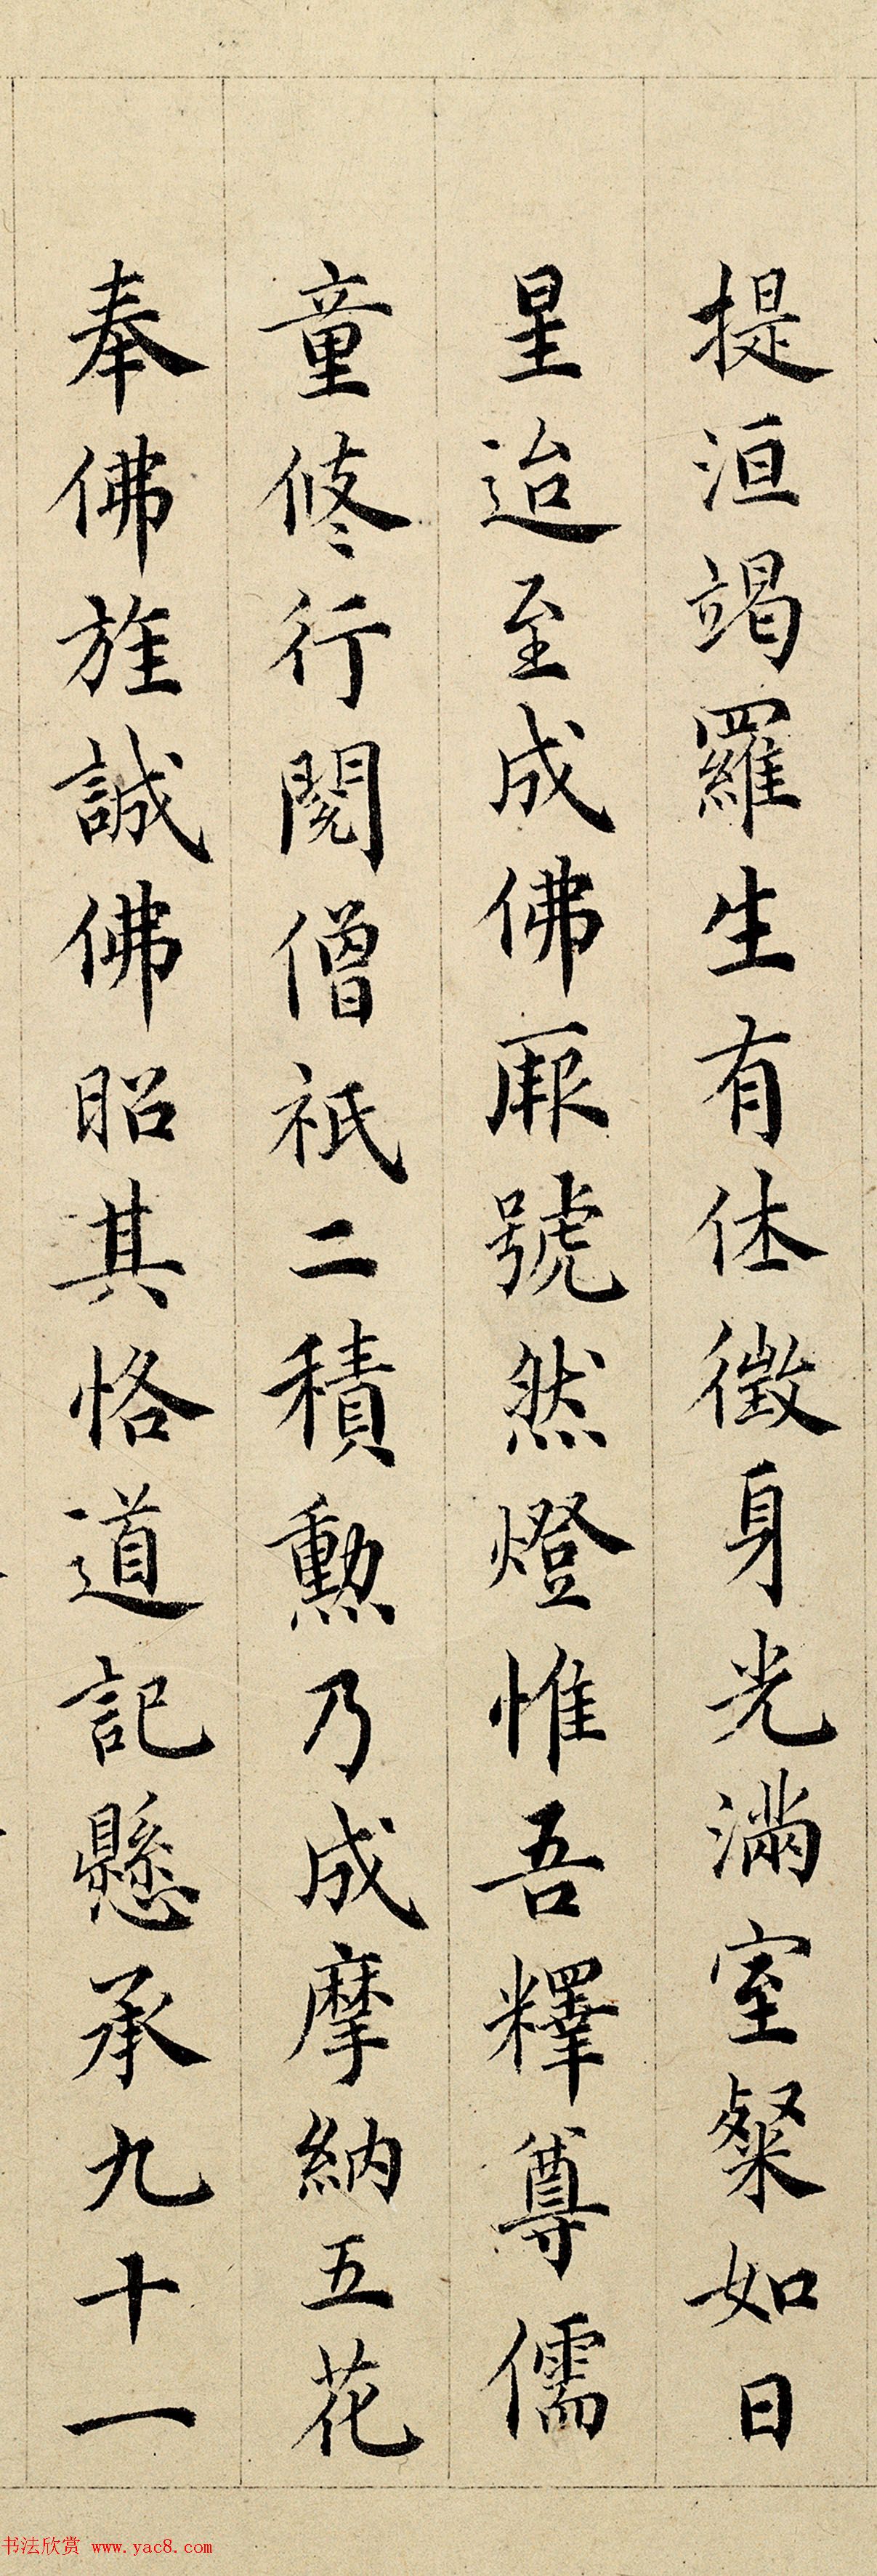 提洹竭羅生有休徵身光滿室粲如日
星迨至成佛厥號然燈惟吾釋尊儒
童修行閱僧祇二積勲乃成摩納五花
奉佛旌誠佛昭其恪道記懸承九十一
书法欣赏 www.yac8.com